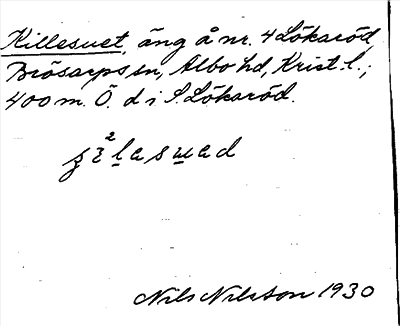 Killesvet, äng å nr. 4 Lökaröd,
Brösarps sn, Albo hd, Krist. l.;
400 m. Ö. d i S. Lökaröd.
Nils Nilsson 1930